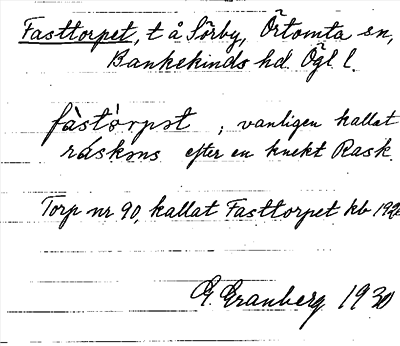 Fasttorpet, t å Sörby, Örtomta sn,
Bankekinds hd. Ögl l.
fàstòrpət ; vanligen kallat
ráskəns efter en knekt Rask.
Torp nr 90, kallat Fasttorpet kb 192
G. Granberg 1930